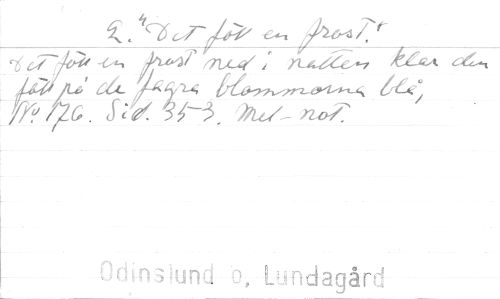 2. "Det föll en frost."
Det föll en frost ned i natten klar den
föll på de fagra blommorna blå,
No 176. Sid. 353. Mel-not.
Odinslund o, Lundagård